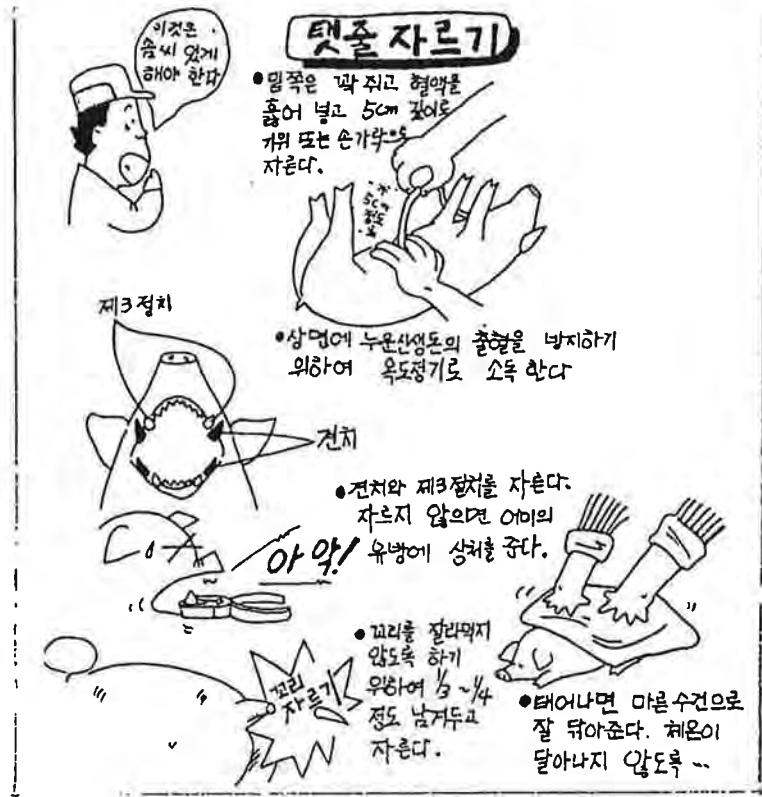 이것은
솜씨 있게
해야 한다
탯줄 자르기
●밑쪽은 꽉 쥐고 혈액을
훑어 넣고 5cm 길이로
가위 또는 손가락으로
자른다.
5cm
정도
제3절치
●상면에 누운신생돈의 출혈을 방지하기
위하여 옥도정기로 소독 한다
견치
●견치와 제3절치를 자른다.
자르지 않으면 어미의
유방에 상처를 준다.
아 악!
●꼬리를 잘라먹지
않도록 하기
위하여 1/3 ~ 1/4
정도 남겨두고
자른다.
꼬리
자르기
●태어나면 마른 수건으로
잘 닦아준다. 체온이
달아나지 않도록 …